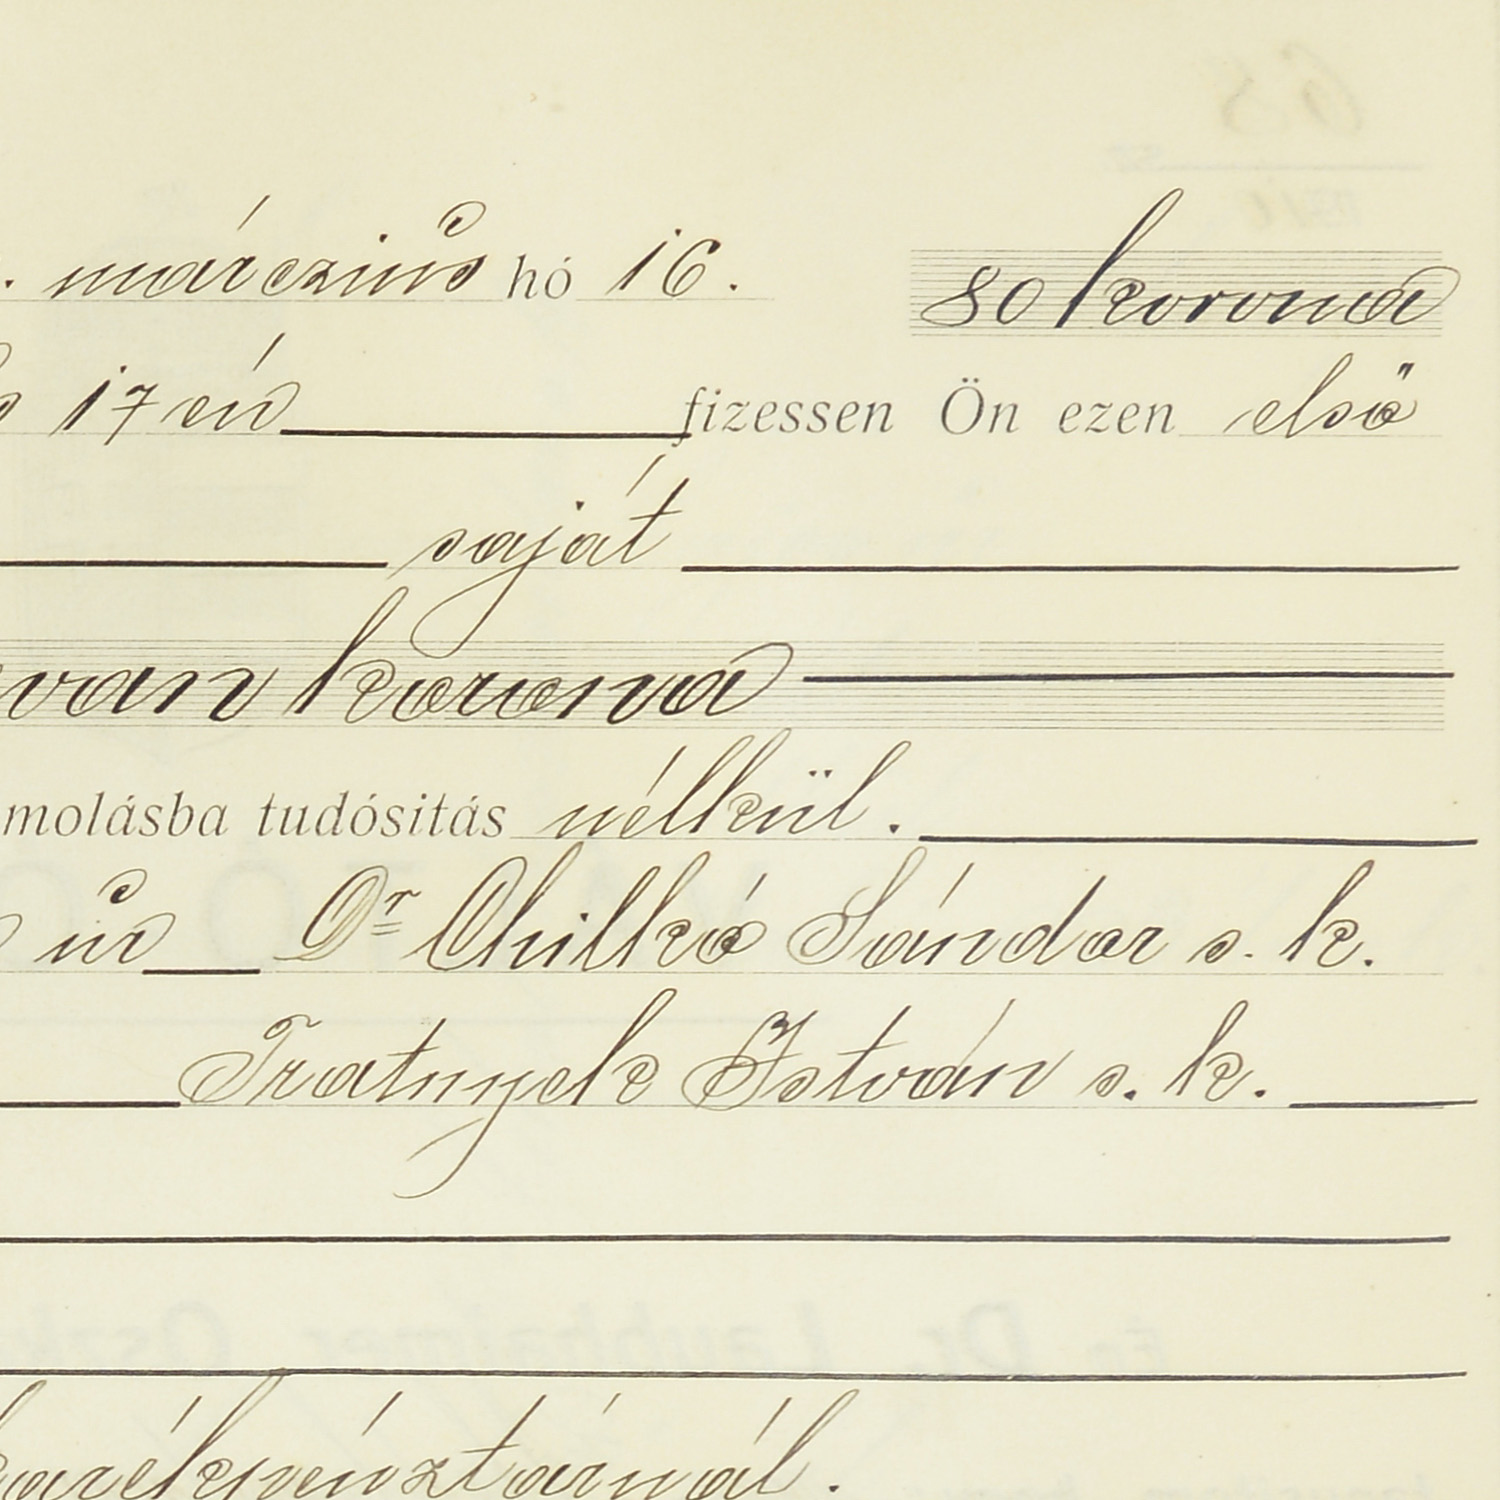 . márczius hó 16. 80 korona
17 én fizessen Ön ezen első
saját
van korona
molásba tudósitás nélkül.
úr Dr Chilkó Sándor s. k.
Tratnyek István s. k.
karékpénztárnál.